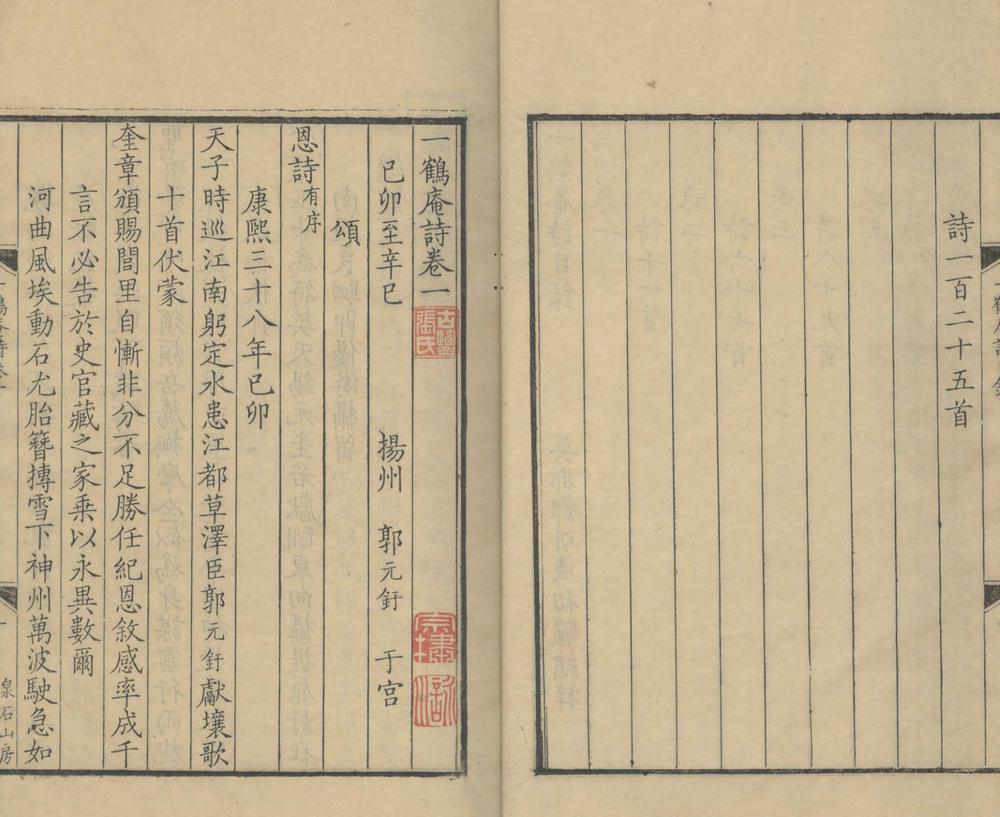 詩一百二十五首
一鶴庵詩卷一
己卯至辛巳 揚州 郭元釪 于宮
頌
恩詩有序
康熙三十八年己卯
天子時巡江南躬定水患江都草澤臣郭元釪獻壤歌
十首伏蒙
奎章頒賜閭里自慚非分不足勝任紀恩敘感率成千
言不必告於史官藏之家乗以永異數爾
河曲風埃動石尤胎簪摶雪下神州萬波駛急如
泉石山房